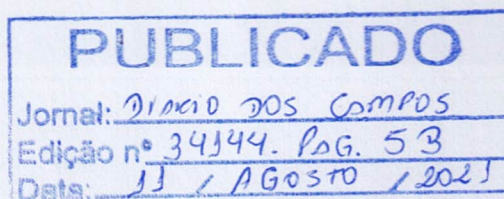 PUBLICADO
Jornal: DIARIO DOS CAMPOS
Edição nº 34144. PAG. 5B
Data: 11 / AGOSTO / 2021